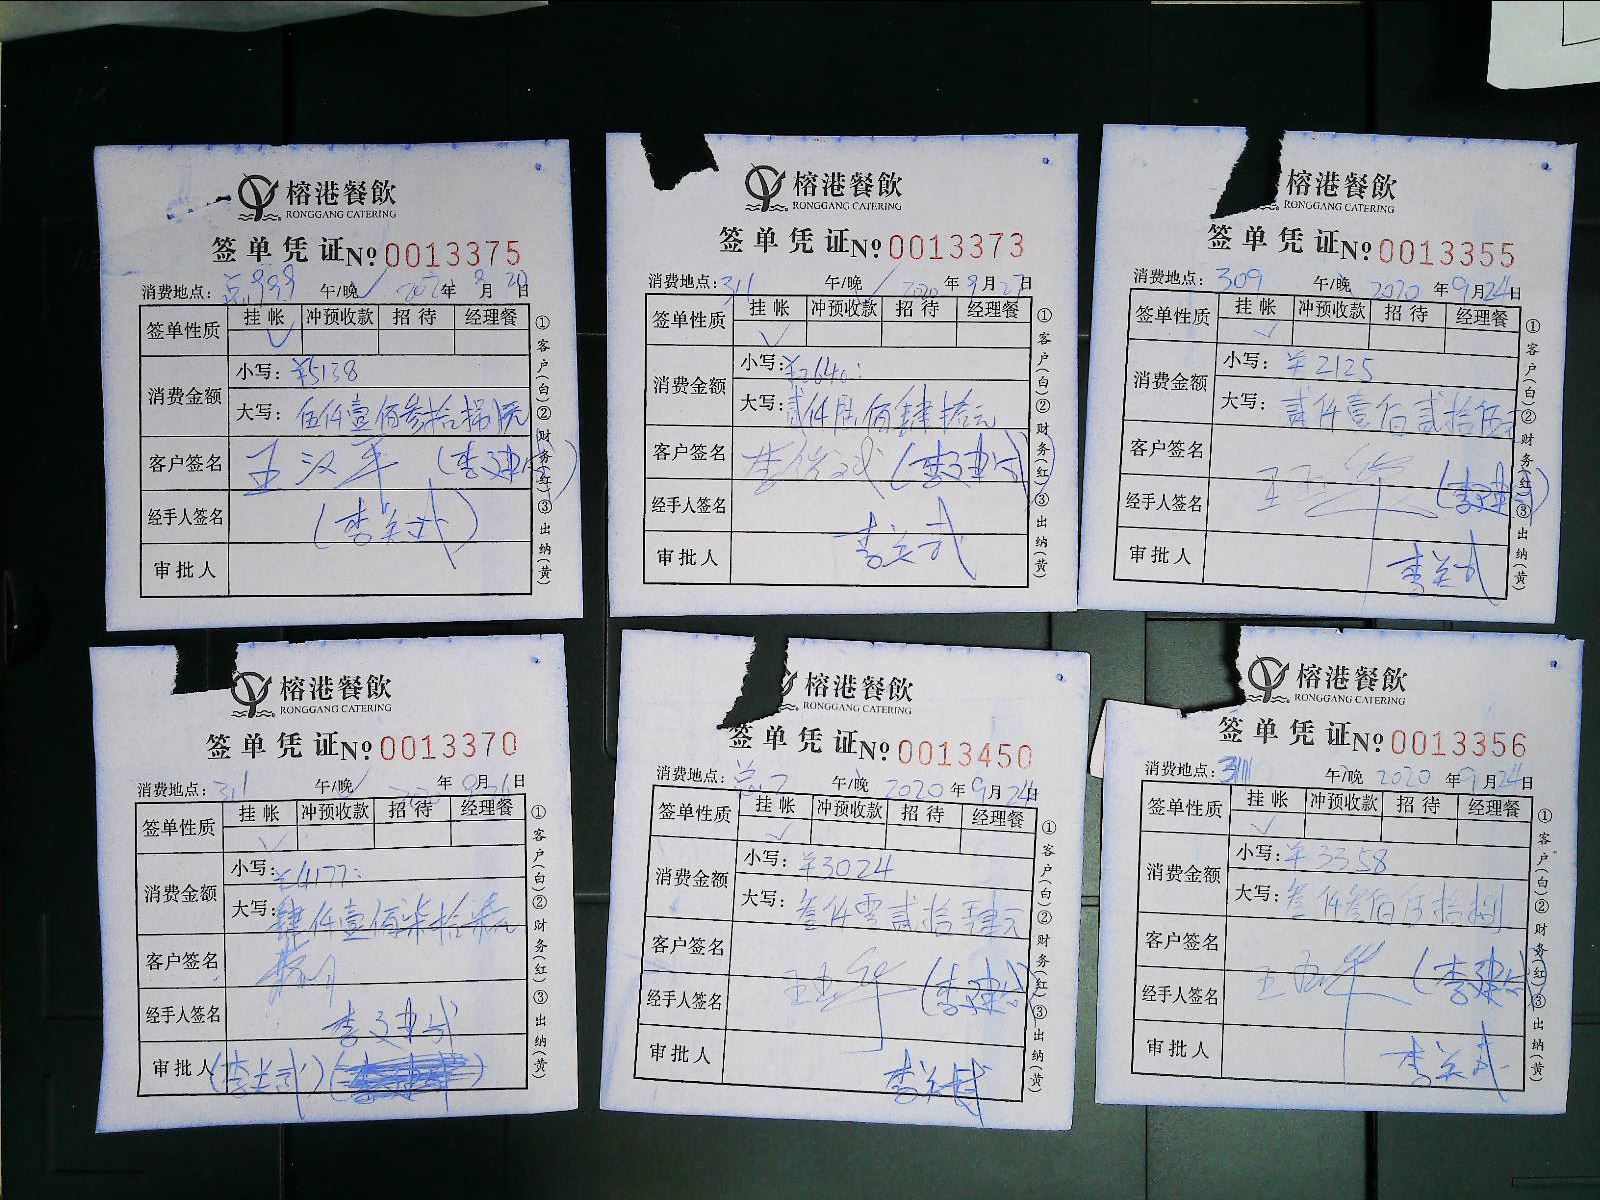 榕港餐飲
RONGGANG CATERING
签单凭证№0013375
消费地点: 999 午/晚 年 月 日
签单性质 挂帐 冲预收款 招待 经理餐
消费金额 小写: ¥5138
大写: 伍仟壹佰叁拾捌元
客户签名 王汉军 (李建成)
经手人签名 (李关武)
审批人
①客户(白)②财务(红)③出纳(黄)
榕港餐飲
RONGGANG CATERING
签单凭证№0013373
消费地点: 311 午/晚 2020年9月27日
签单性质 挂帐 冲预收款 招待 经理餐
消费金额 小写: ¥2640:
大写: 贰仟陆佰肆拾元
客户签名 (李建成)
经手人签名 李关武
审批人
①客户(白)②财务(红)③出纳(黄)
榕港餐飲
RONGGANG CATERING
签单凭证№0013355
消费地点: 309 午/晚 2020年9月24日
签单性质 挂帐 冲预收款 招待 经理餐
消费金额 小写: ¥2125
大写: 贰仟壹佰贰拾伍元
客户签名 王玉华 (李建成)
经手人签名
审批人 李关武
①客户(白)②财务(红)③出纳(黄)
榕港餐飲
RONGGANG CATERING
签单凭证№0013370
消费地点: 311 午/晚 2020年9月 日
签单性质 挂帐 冲预收款 招待 经理餐
消费金额 小写: ¥4177:
大写: 肆仟壹佰柒拾柒元
客户签名
经手人签名 李建成
审批人 (李关武)
①客户(白)②财务(红)③出纳(黄)
榕港餐飲
RONGGANG CATERING
签单凭证№0013450
消费地点: 午/晚 2020年9月24日
签单性质 挂帐 冲预收款 招待 经理餐
消费金额 小写: ¥3024
大写: 叁仟零贰拾肆元
客户签名 王玉华 (李建成)
经手人签名
审批人 李关武
①客户(白)②财务(红)③出纳(黄)
榕港餐飲
RONGGANG CATERING
签单凭证№0013356
消费地点: 午/晚 2020年9月24日
签单性质 挂帐 冲预收款 招待 经理餐
消费金额 小写: ¥3358
大写: 叁仟叁佰伍拾捌
客户签名 王玉华 (李建成)
经手人签名
审批人 李关武
①客户(白)②财务(红)③出纳(黄)